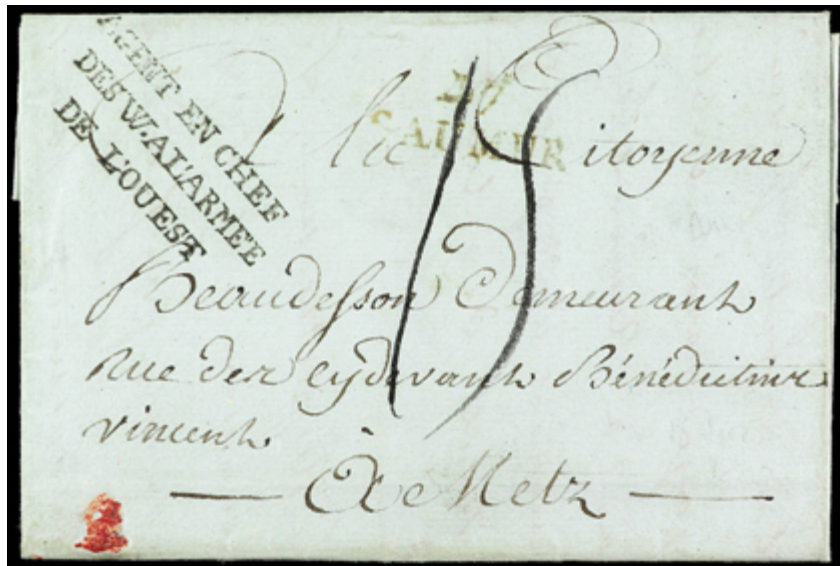 AGENT EN CHEF
DES W. A L'ARMÉE
DE L'OUEST
SAUMUR
15
A la Citoyenne
Beaudesson Demeurant
rue des cydevant Bénédictins
vincent
À Metz